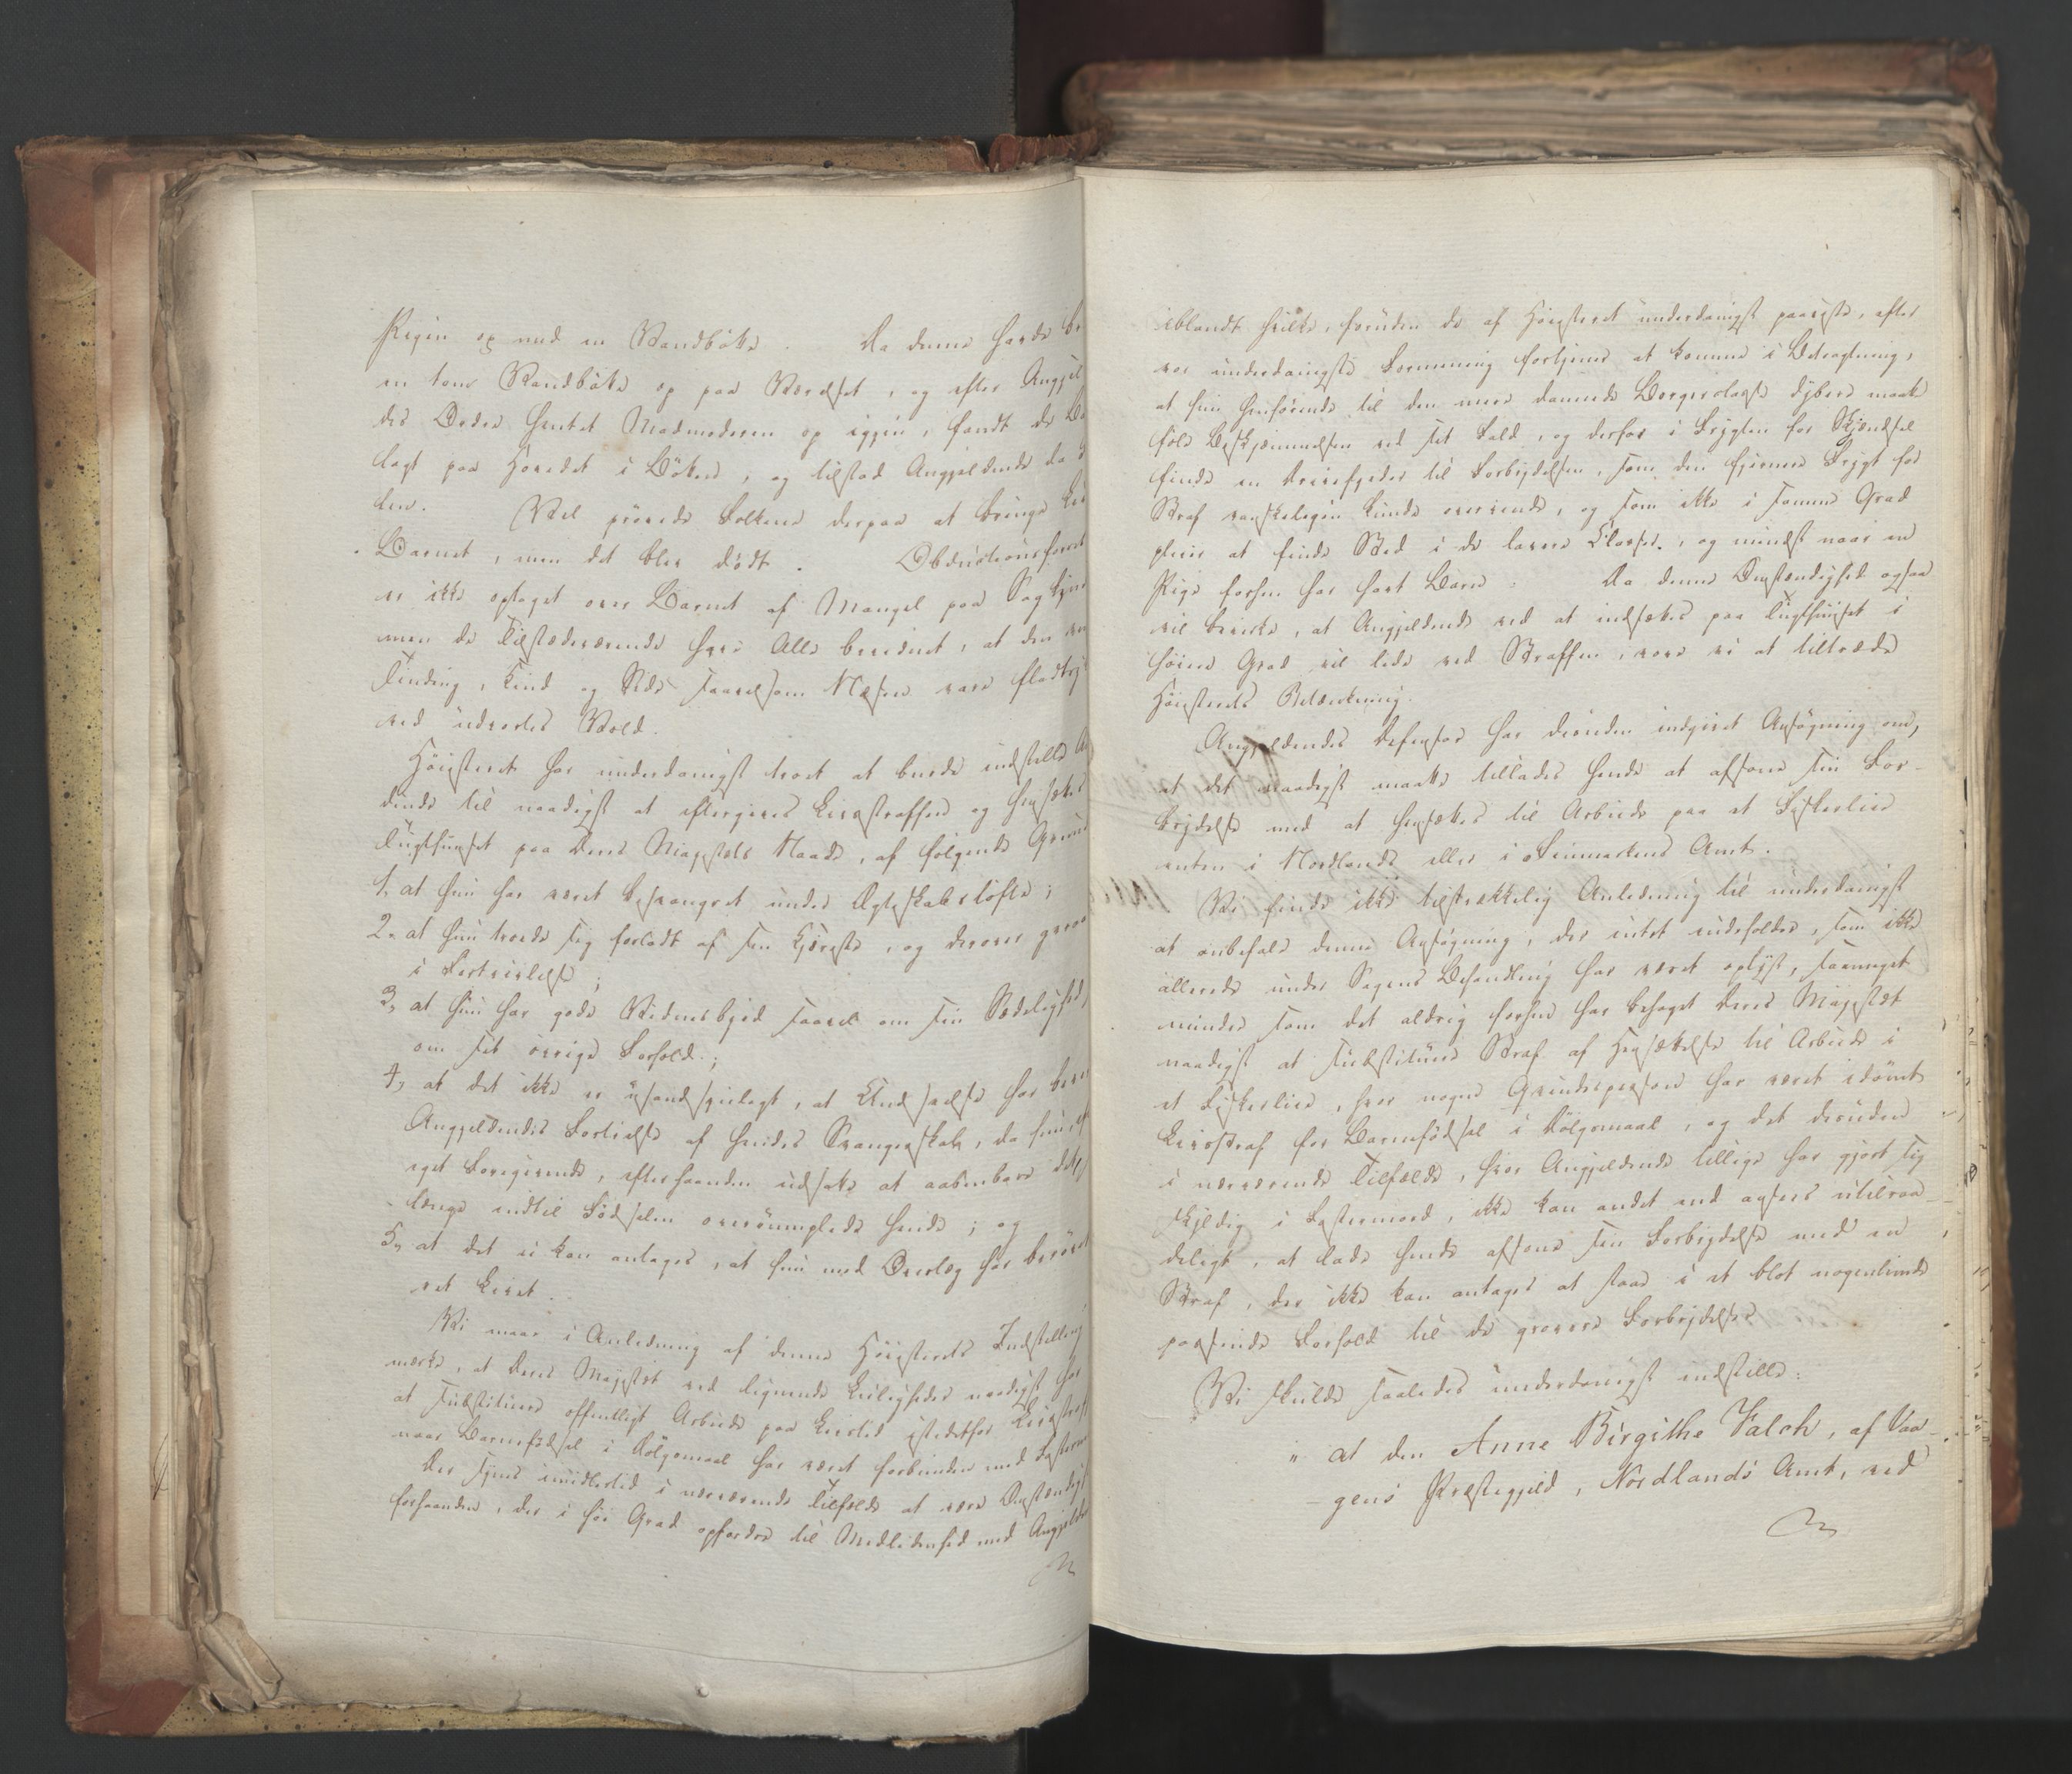 Pigen op med en Vandbötte. Da denne havde
en tom Vandbötte op paa Værelset, og efter
des Ordre hentet Madmoderen op igjen, fandt de
lagt paa Hovedet i Bötten, og tilstod Angjeldende da
den. Vel prövede Folkene derpaa at bringe
Barnet, men det blev dödt.
er ikke optaget over Barnet af Mangel paa
men de Tilstedeværende have Alle bevidnet, at den
Tinding, Kind og Side saavelsom Næsen vare
ved udvortes Vold.
Höiesteret har underdanigst troet at burde indstille
dende til naadigst at eftergives Livsstraffen og hensættes
Tugthuset paa Deres Majestæts Naade, af fölgende
1, at hun har været besvangret under Ægteskabslöfte;
2, at hun troede sig forladt af sin Kjæreste, og derover
i Fortvivlelse;
3, at hun har gode Vidnesbyrd saavel om sin Sædelighed,
om sit övrige Forhold;
4, at det ikke er usandsynligt, at Undseelse har
Angjeldendes Fortielse af hendes Svangerskab, da hun
eget Foregivende, efterhaanden udsatte at aabenbare
længe indtil Födselen overrumplede hende; og
5, at det ei kan antages, at hun med Overlæg har berövet
ret Livet.
Vi maae i Anledning af denne Höiesterets Indstilling
mærke, at Deres Majestæt ved lignende Leiligheder naadigst har
at substituere offentligt Arbeide paa Livstid istedetfor Livsstraf
naar Barnefödsel i Dölgsmaal har været forbunden med
Der synes imidlertid i nærværende Tilfælde at være
forhaanden, der i höi Grad opfordre til Medlidenhed med
iblandt hvilke, foruden de af Höiesteret underdanigst paaregte, efter
vor underdanigste Formening fortjener at komme i Betragtning,
at hun henhörende til den mere dannede Borgerclasse dybere maatte
föle Beskjæmmelsen ved sit Fald, og derfor i Frygten for Skjændsel
finde en Drivefjeder til Forbrydelsen, som den fjernere Frygt for
Straf vanskeligen kunde overvinde, og som ikke i samme Grad
pleier at finde Sted i de lavere Classer, og mindst naar en
Pige forhen har havt Barn. Da denne Omstændighed ogsaa
vil bevirke, at Angjeldende ved at indsættes paa Tugthuset i
höiere Grad vil lide ved Straffen, vove vi at tiltræde
Höiesterets Betænkning.
Angjeldendes Defensor har desuden indgivet Ansögning om,
at det naadigst maatte tillades hende at afsone sin For-
brydelse med at hensættes til Arbeide paa et Fiskerleie
enten i Nordlands eller i Finmarkens Amt.
Vi finde ikke tilstrækkelig Anledning til underdanigst
at anbefale denne Ansögning, der intet indeholder, som ikke
allerede under Sagens Behandling har været oplyst, saameget
mindre som det aldrig forhen har behaget Deres Majestæt
naadigst at substituere Straf af Hensættelse til Arbeide i
et Fiskerleie, hvor nogen Qvindesperson har været idömt
Livsstraf for Barnefödsel i Dölgsmaal, og det desuden
i nærværende Tilfælde, hvor Angjeldende tillige har gjort sig
skyldig i Fostermord, ikke kan andet end ansees utilraa-
deligt, at lade hende afsone sin Forbrydelse med en
Straf, der ikke kan antages at staae i et blot nogenlunde
passende Forhold til de grovere Forbrydelser.
Vi skulde saaledes underdanigst indstille:
" at den Anne Birgithe Falch, af Vaa-
gens Præstegjeld, Nordlands Amt, ved